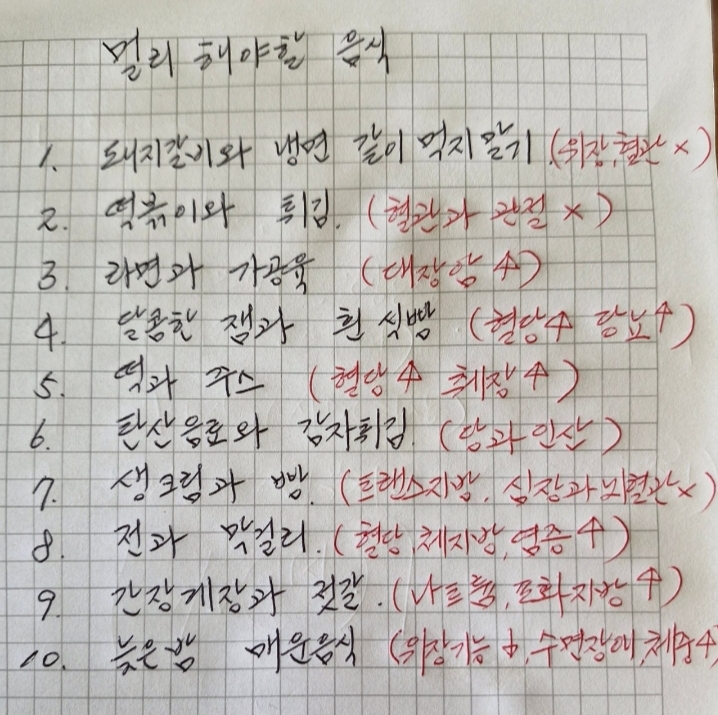 멀리 해야할 음식
1. 돼지갈비와 냉면 같이 먹지말기 (위장, 혈관 ×)
2. 떡볶이와 튀김. (혈관과 관절 ×)
3. 라면과 가공육 (대장암 ↑)
4. 달콤한 잼과 흰 식빵 (혈당↑ 당뇨↑)
5. 떡과 주스 (혈당↑ 췌장↑)
6. 탄산음료와 감자튀김. (당과 인산)
7. 생크림과 빵. (트랜스지방, 심장과 뇌혈관×)
8. 전과 막걸리. (혈당, 체지방, 염증↑)
9. 간장게장과 젓갈. (나트륨, 포화지방↑)
10. 늦은밤 매운음식 (위장기능↓, 수면장애, 체중↑